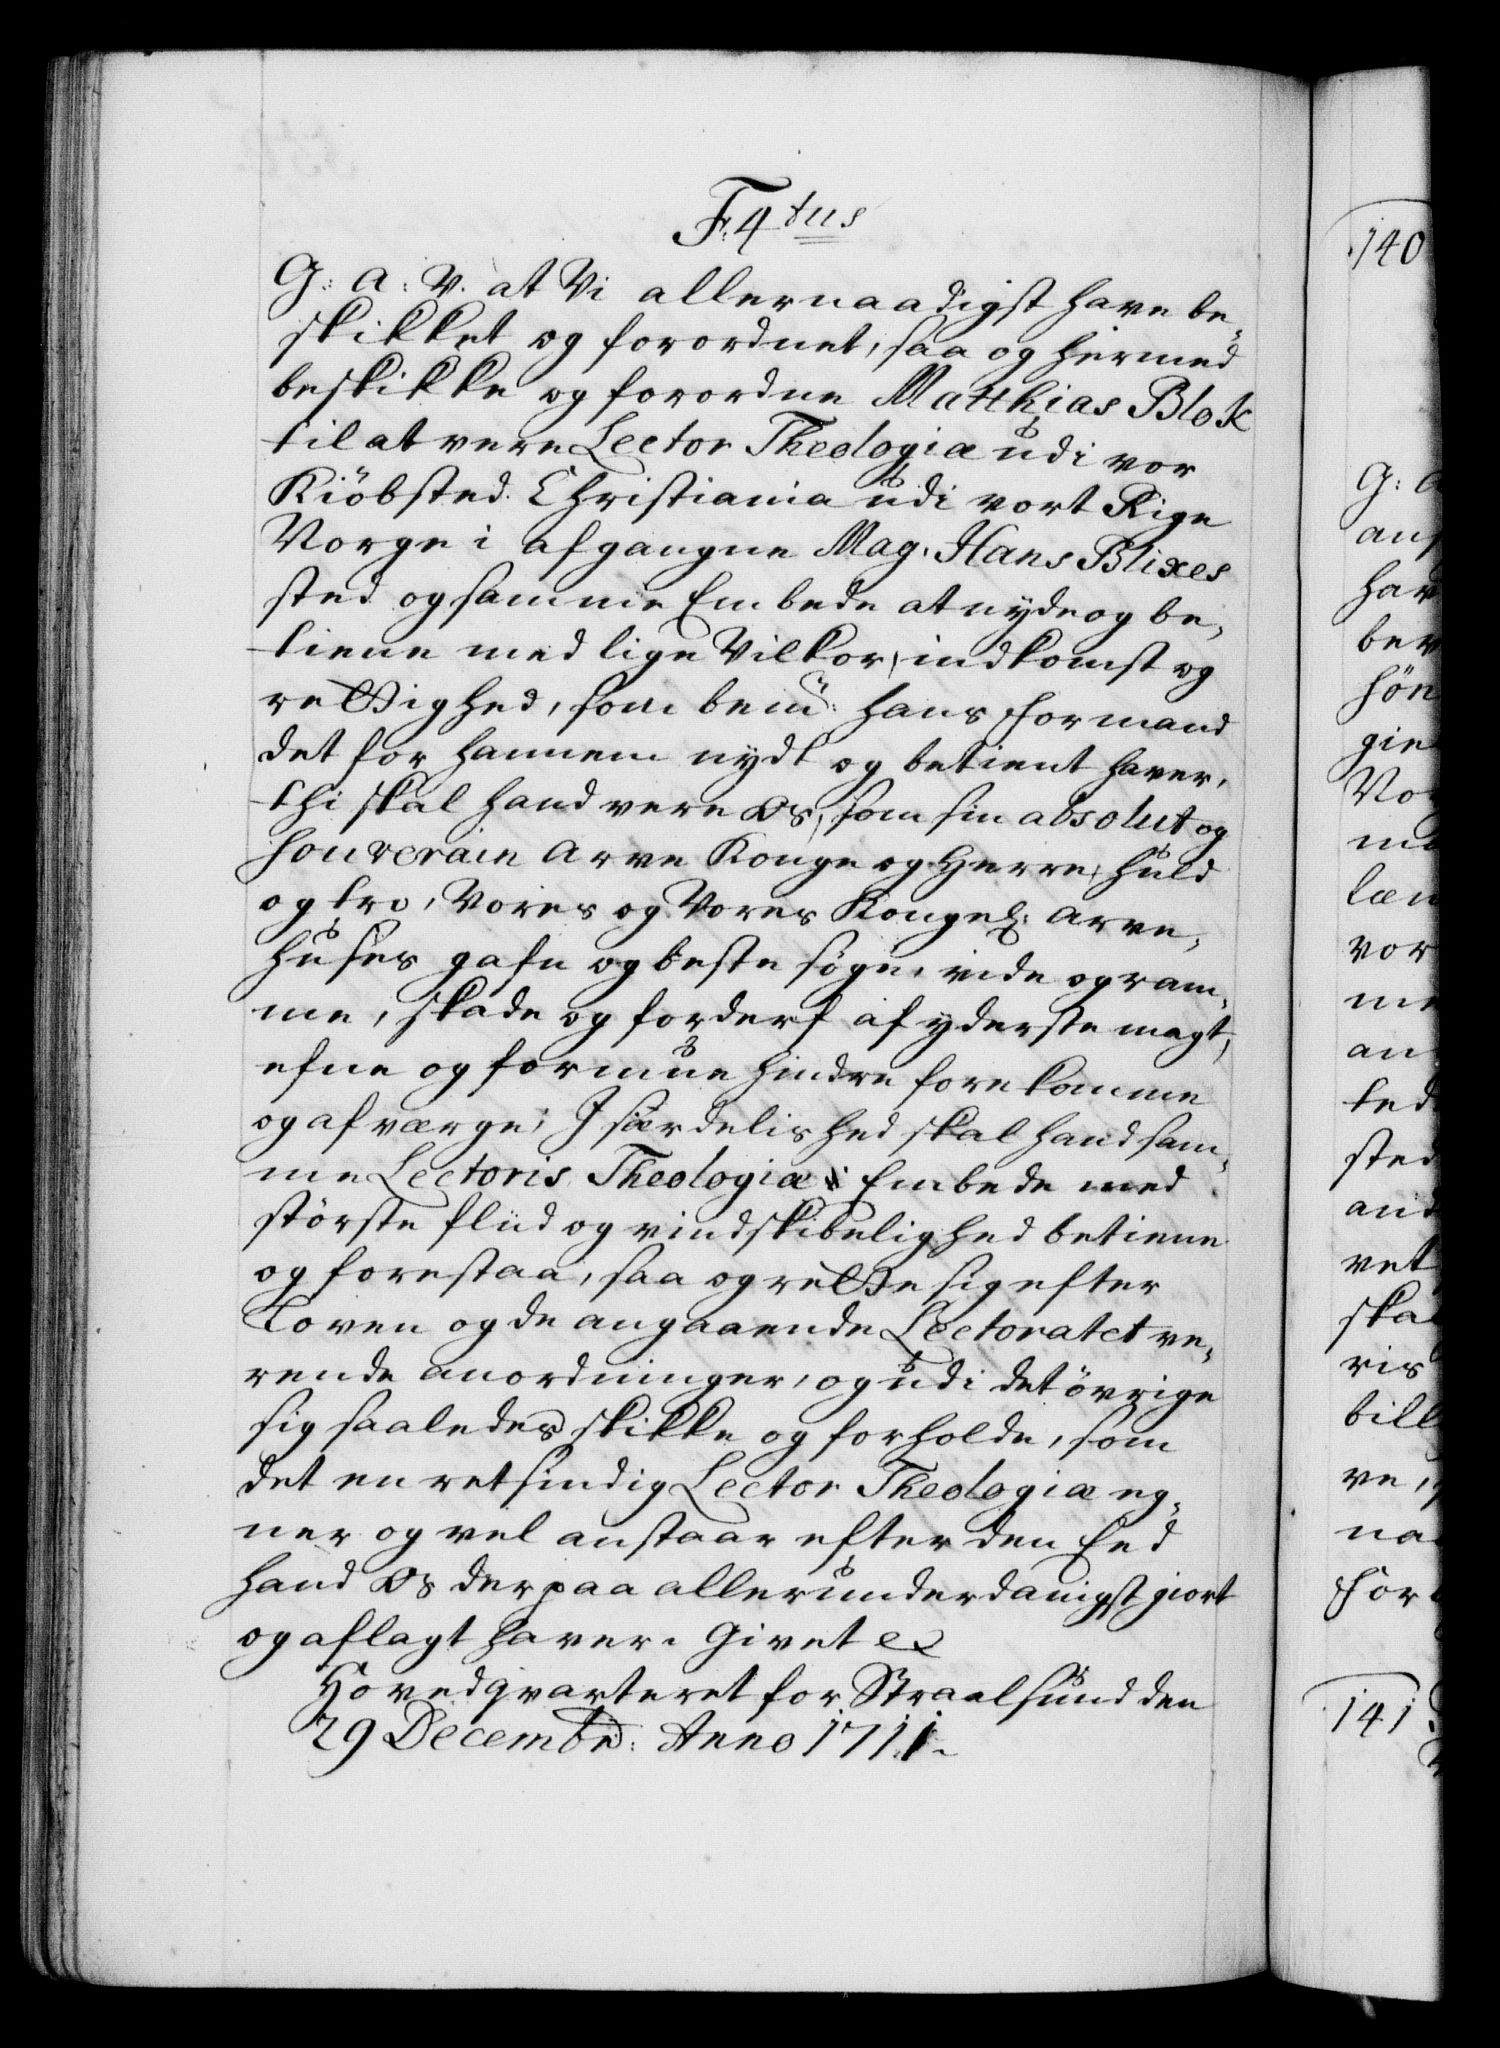 F. 4tus
G: A: V. at Vi allernaadigst have be-
skikket og forordnet, saa og hermed
beskikke og forordne Matthias Blok
til at vere Lector Theologiæ udi vor
Kiöbsted Christiania udi vort Rige
Norge i afgangne Mag. Hans Blixes
sted og samme Embede at nyde og be-
tiene med lige Vilkor, indkomst og
rettighed, som bem: hans Formand
det for hannem nydt og betient haver,
thi skal hand vere Os, som sin absolut og
souverain Arve Konge og Herre, huld
og tro, Vores og Vores Kongel: Arve-
Huses gafn og beste söge, vide og ram-
me, skade og forderf af yderste magt,
efne og formue hindre forekomme
og afværge; I særdelished skal hand sam-
me Lectoris Theologiæ Embede med
störste fliid og vindskibelighed betiene
og forestaa, saa og rette sig efter
Loven og de angaaende Lectoratet ve-
rende anordninger, og udi det övrige
sig saaledes skikke og forholde, som
det en retsindig Lector Theologiæ eg-
ner og vel anstaar efter den Eed
hand Os derpaa allerunderdanigst giort
og aflagt haver. Givet
Hovedqvarteret for Straalsund den
29 Decembr: Anno 1711.
140
G: A
hav
ber
hön
gie
Nor
læn
vor
me
an
ted
sted
and
vet
skal
ris
bill
ve,
na
For
141